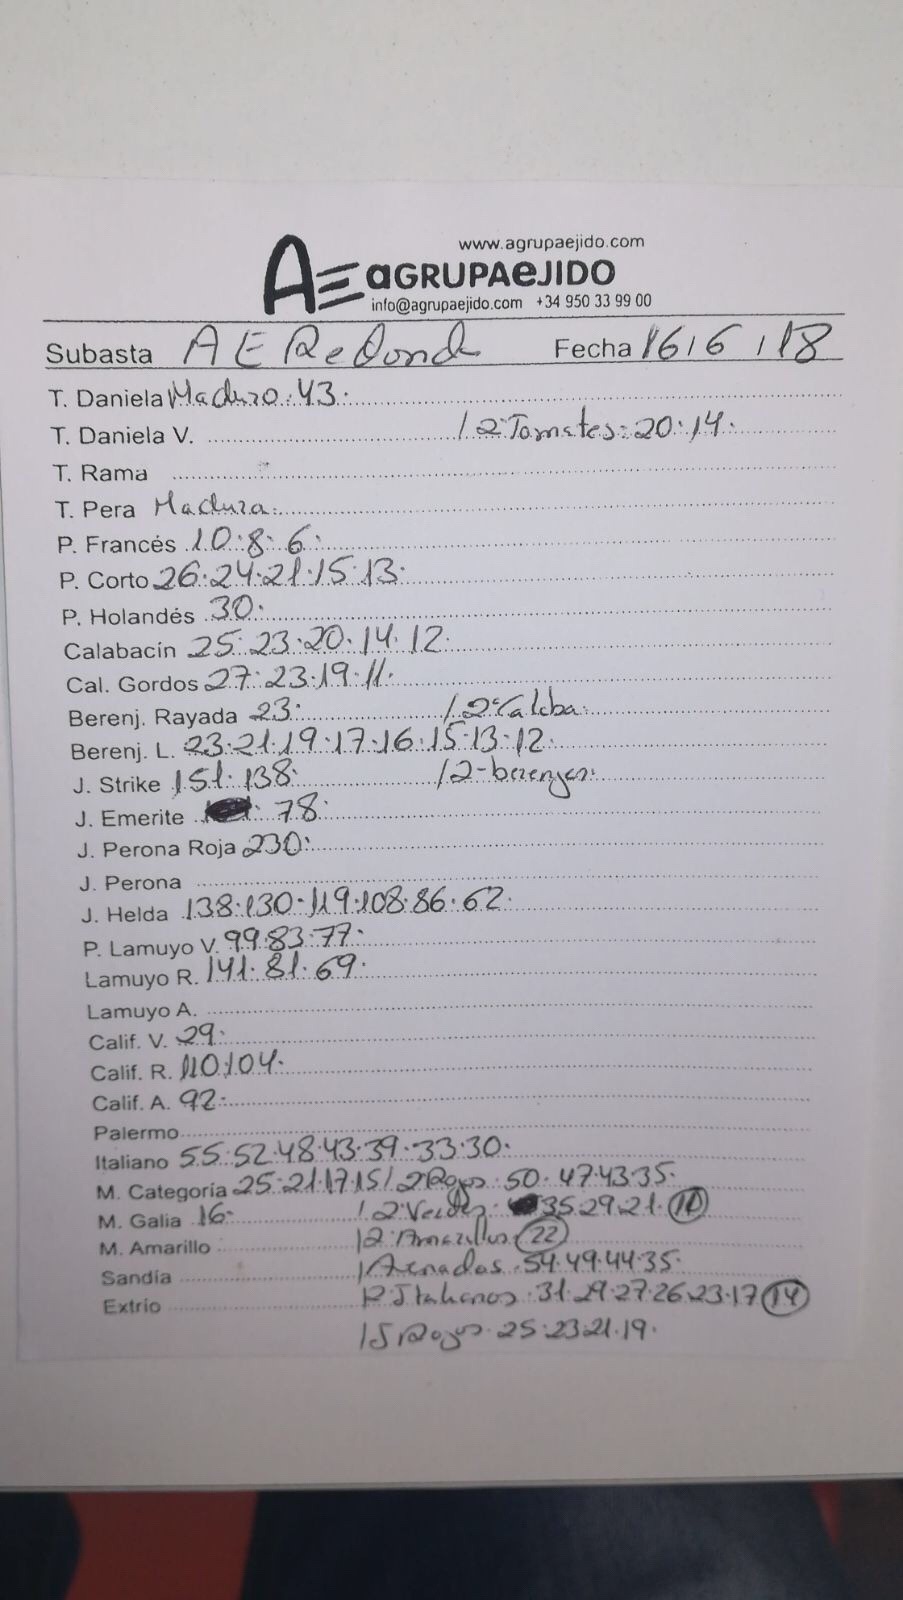 www.agrupaejido.com
AE aGRUPAeJIDO
info@agrupaejido.com +34 950 33 99 00
Subasta AE Redondo Fecha 16/6/18
T. Daniela Maduro 43.
T. Daniela V. / 2ª Tomates: 20.14.
T. Rama
T. Pera Madura.
P. Francés 10.8.6.
P. Corto 26.24.21.15.13.
P. Holandés 30.
Calabacín 25.23.20.14.12.
Cal. Gordos 27.23.19.11.
Berenj. Rayada 23. / 2ª Calaba.
Berenj. L. 23.21.19.17.16.15.13.12.
J. Strike 151.138. / 2-berenjas.
J. Emerite 78.
J. Perona Roja 230.
J. Perona
J. Helda 138.130.119.108.86.62.
P. Lamuyo V. 99.83.77.
Lamuyo R. 141.81.69.
Lamuyo A.
Calif. V. 29.
Calif. R. 110.104.
Calif. A. 92.
Palermo
Italiano 55.52.48.43.39.33.30.
M. Categoría 25.21.17.15 / 2ª Rojos 50.47.43.35.
M. Galia 16. / 2ª Verdes 35.29.21.
M. Amarillo / 2ª Amarillos 22
Sandía / Asados 54.49.44.35.
Extrio Italianos 31.29.27.26.23.17 14
Rojos 25.23.21.19.